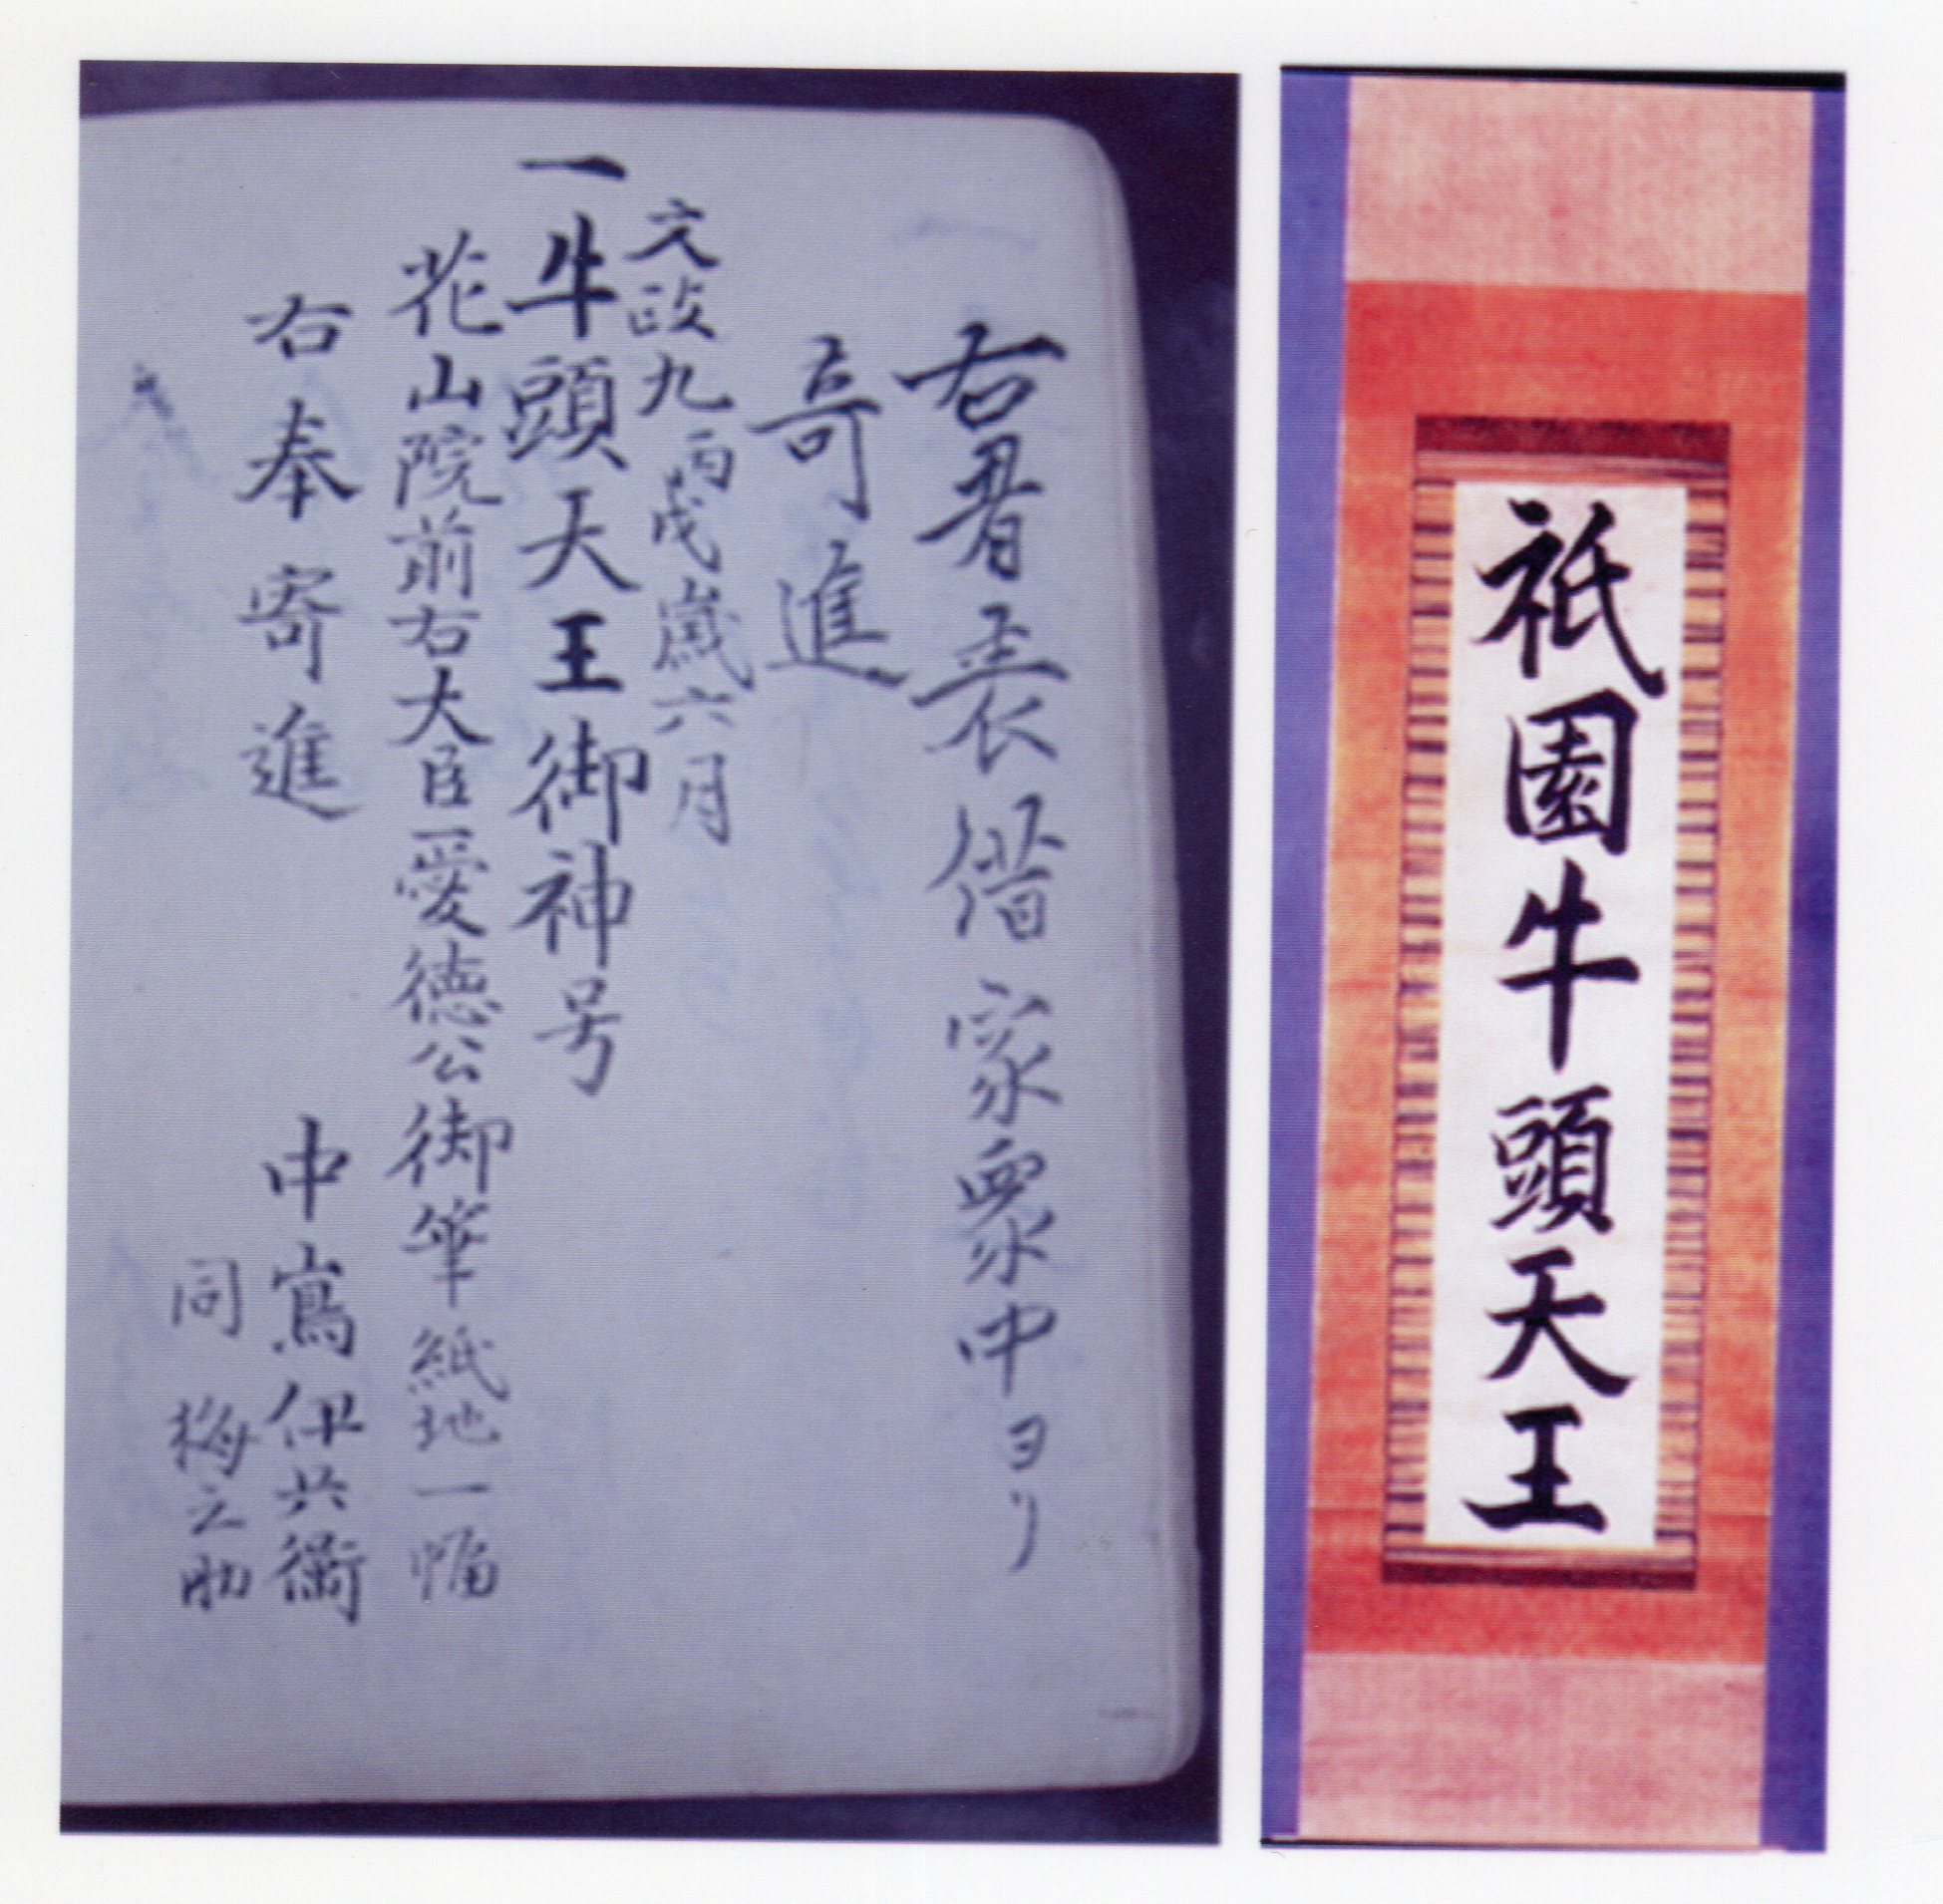 右者表借家衆中ヨリ
竒進
文政九丙戌歳六月
一牛頭天王御神号
花山院前右大臣愛徳公御筆紙地一幅
右奉寄進
中嶌伊兵衛
同 梅之助
祇園牛頭天王